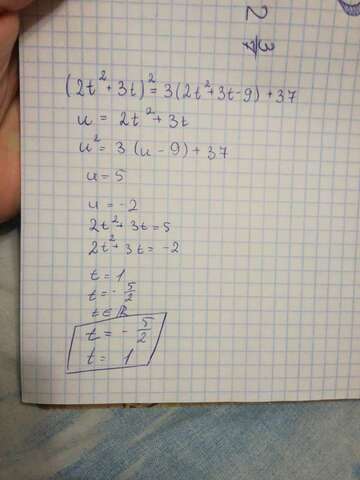 3/7
2
(2t²+3t)² = 3(2t²+3t-9)+37
u = 2t²+3t
u² = 3(u-9)+37
u = 5
u = -2
2t²+3t = 5
2t²+3t = -2
t = 1
t = -5/2
t ∉ ℝ
t = -5/2
t = 1